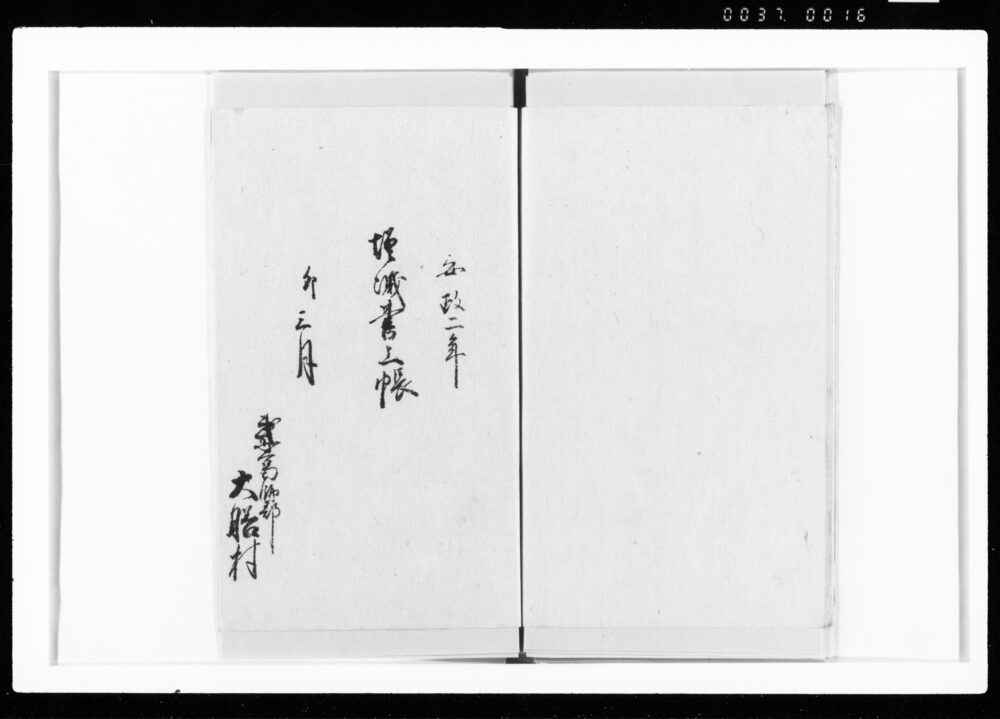 0037.0016
安政二年
増減書上帳
卯三月
葛飾郡
大膳村